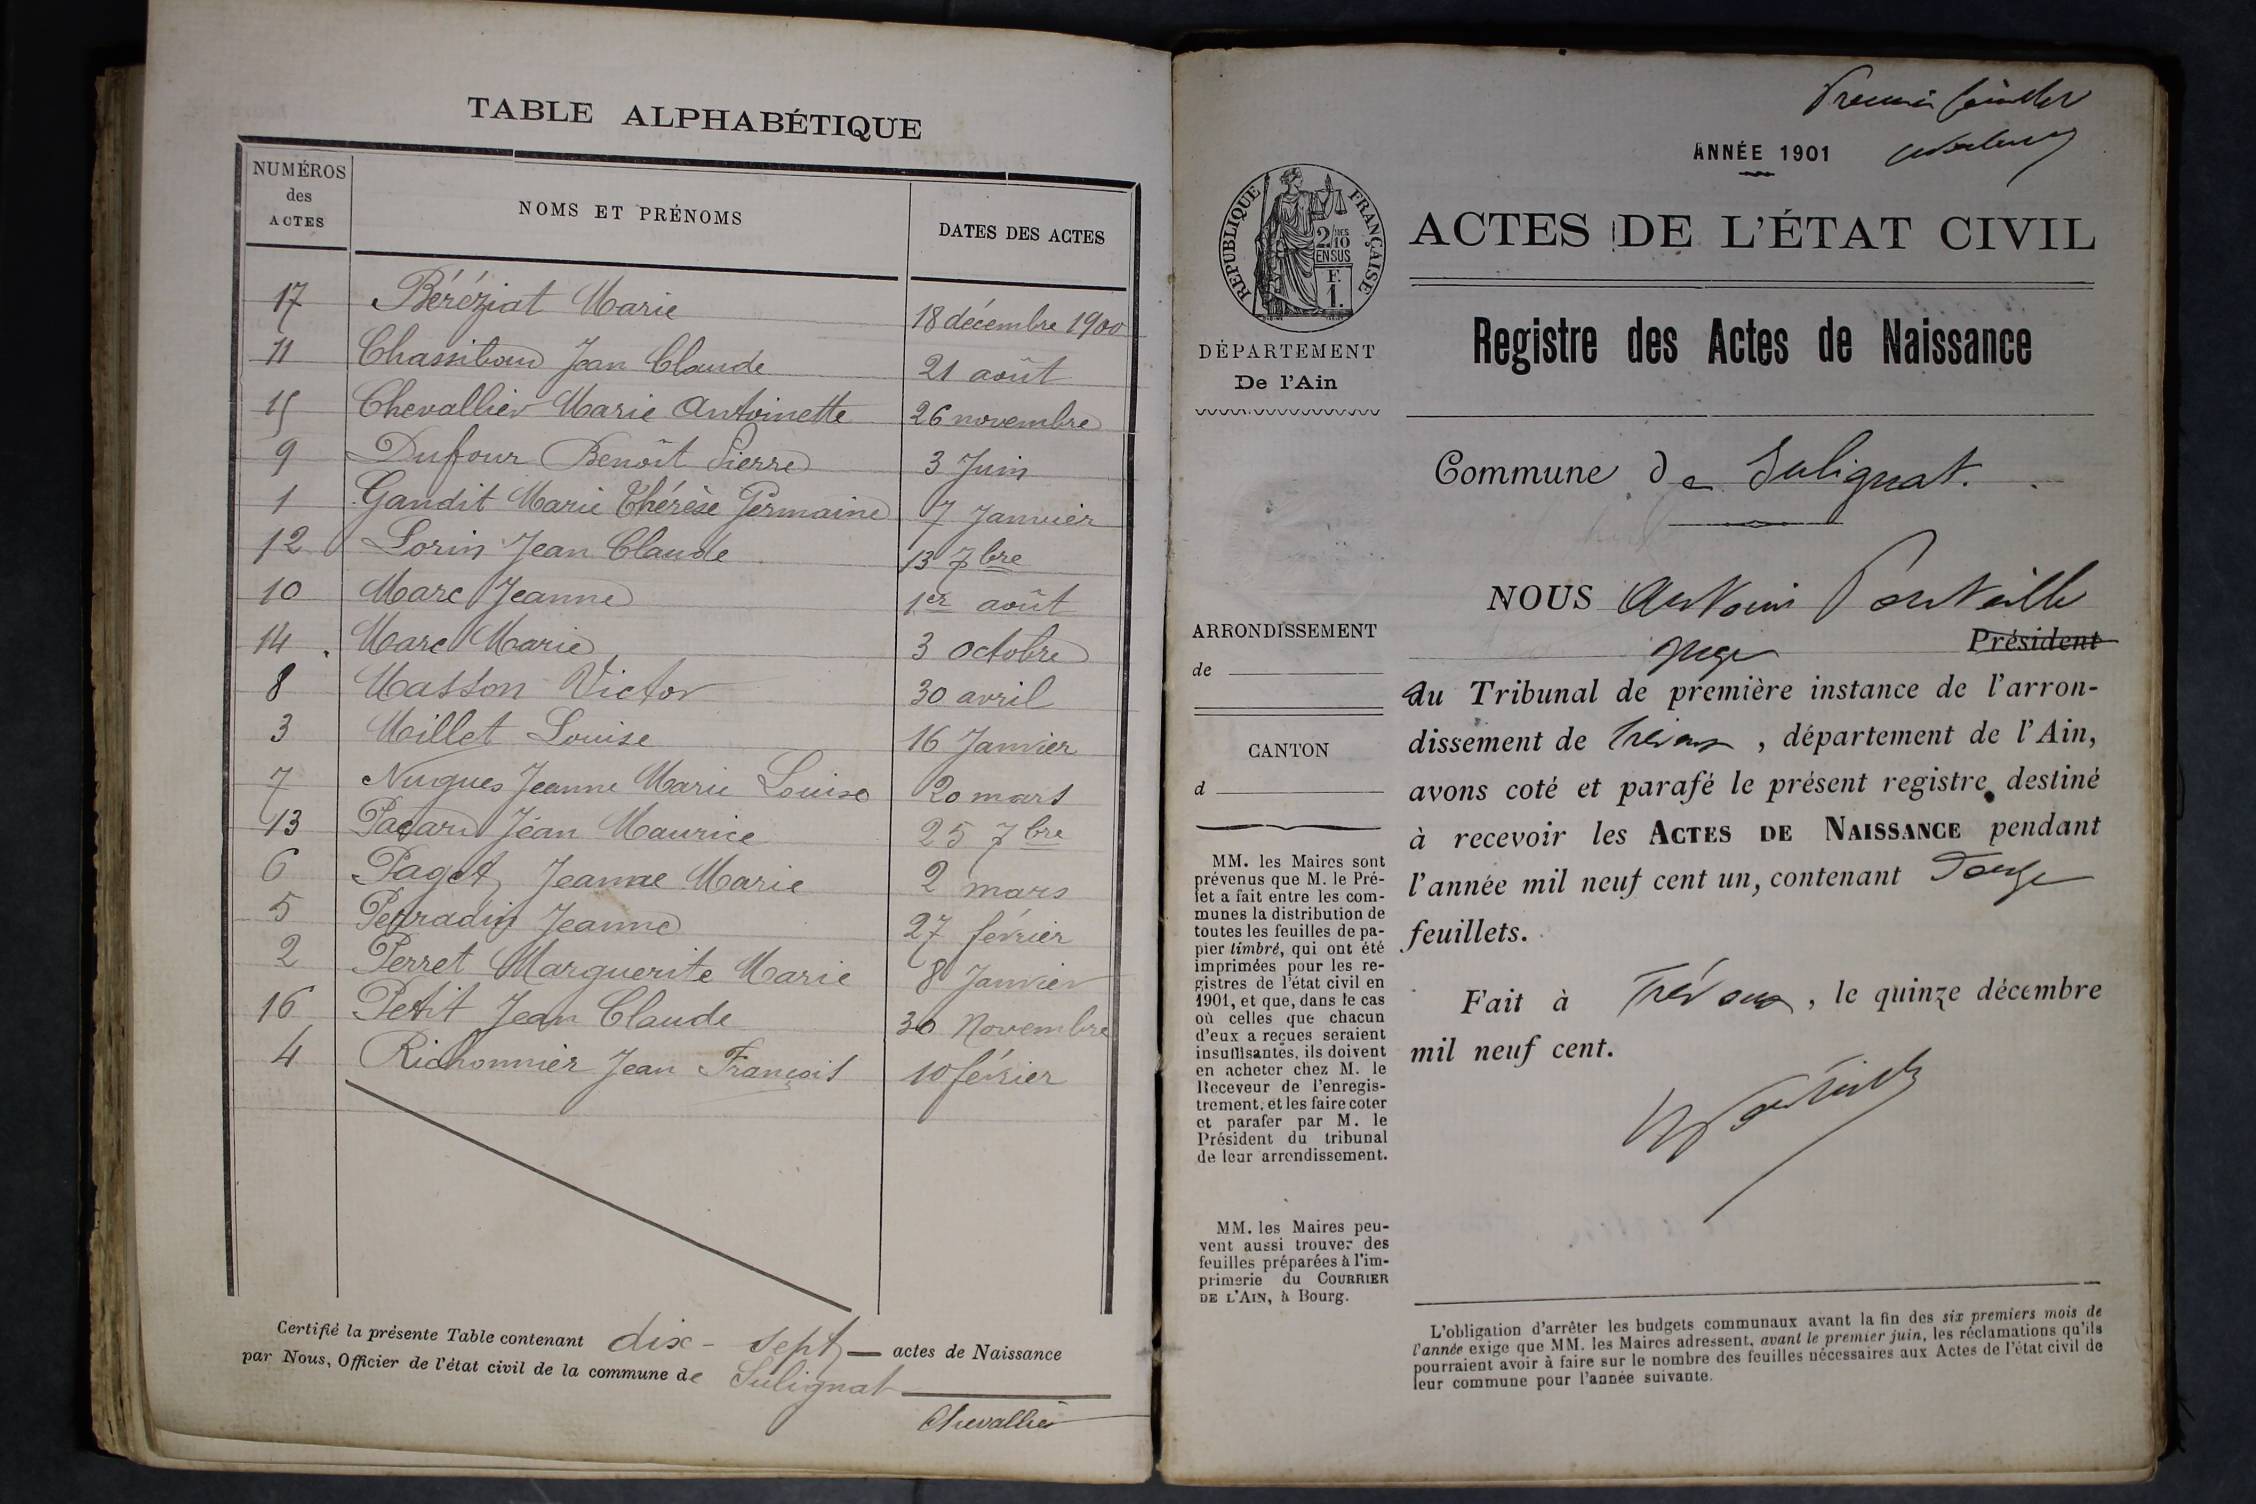 TABLE ALPHABÉTIQUE
NUMÉROS
des
ACTES
NOMS ET PRÉNOMS
DATES DES ACTES
17 Béréziat Marie 18 décembre 1900
11 Chassiboud Jean Claude 21 août
15 Chevallier Marie Antoinette 26 novembre
9 Dufour Benoît Pierre 3 Juin
1 Gandit Marie Thérèse Germaine 7 Janvier
12 Lorin Jean Claude 13 7bre
10 Marc Jeanne 1er août
14 Marc Marie 3 Octobre
8 Masson Victor 30 avril
3 Millet Louise 16 Janvier
7 Nugues Jeanne Marie Louise 20 mars
13 Pacard Jean Maurice 25 7bre
6 Paget Jeanne Marie 2 mars
5 Perradin Jeanne 27 février
2 Perret Marguerite Marie 8 Janvier
16 Petit Jean Claude 30 Novembre
4 Richonnier Jean François 10 février
Certifié la présente Table contenant dix-sept actes de Naissance
par Nous, Officier de l'état civil de la commune de Sulignat
Chevallier
Premier feuillet
ANNÉE 1901
RÉPUBLIQUE FRANÇAISE
2/10 MES
EN SUS
F.
1.
ACTES DE L'ÉTAT CIVIL
DÉPARTEMENT
De l'Ain
Registre des Actes de Naissance
Commune de Sulignat.
ARRONDISSEMENT
de
CANTON
d
MM. les Maires sont
prévenus que M. le Pré-
fet a fait entre les com-
munes la distribution de
toutes les feuilles de pa-
pier timbré, qui ont été
imprimées pour les re-
gistres de l'état civil en
1901, et que, dans le cas
où celles que chacun
d'eux a reçues seraient
insuffisantes, ils doivent
en acheter chez M. le
Receveur de l'enregis-
trement, et les faire coter
et parafer par M. le
Président du tribunal
de leur arrondissement.
MM. les Maires peu-
vent aussi trouver des
feuilles préparées à l'im-
primerie du COURRIER
DE L'AIN, à Bourg.
NOUS Antoine Ponteille
Juge Président
au Tribunal de première instance de l'arron-
dissement de Trévoux, département de l'Ain,
avons coté et parafé le présent registre destiné
à recevoir les ACTES DE NAISSANCE pendant
l'année mil neuf cent un, contenant Douze
feuillets.
Fait à Trévoux, le quinze décembre
mil neuf cent.
L'obligation d'arrêter les budgets communaux avant la fin des six premiers mois de
l'année exige que MM. les Maires adressent, avant le premier juin, les réclamations qu'ils
pourraient avoir à faire sur le nombre des feuilles nécessaires aux Actes de l'état civil de
leur commune pour l'année suivante.